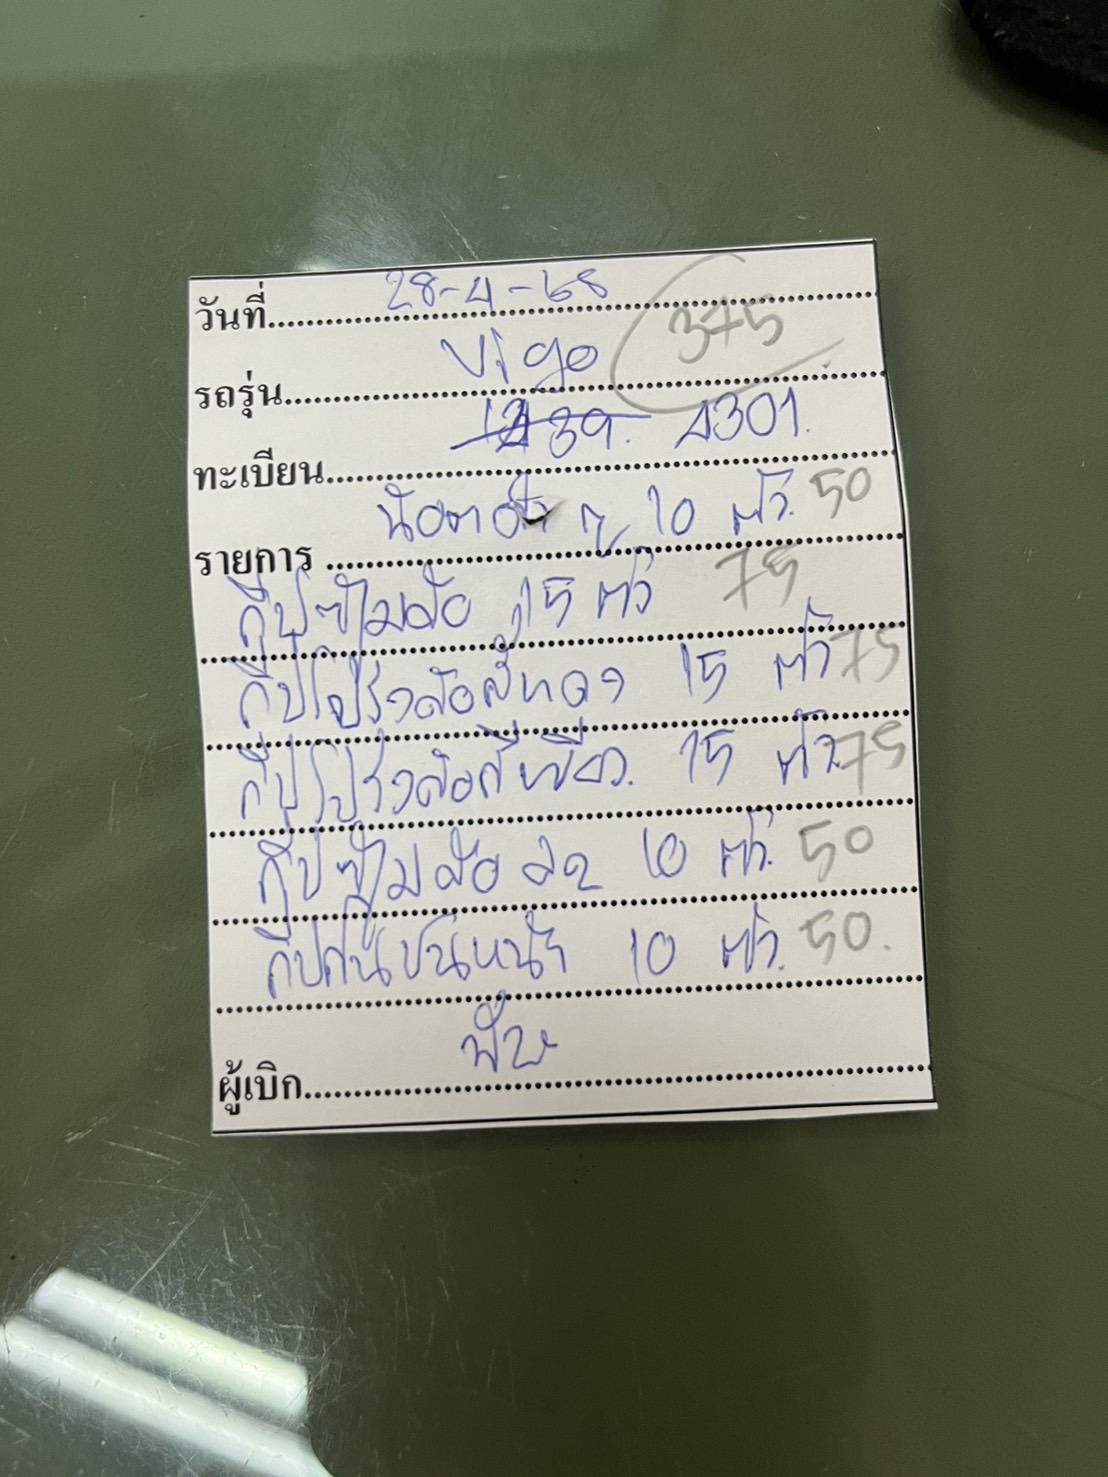 วันที่ 28-4-68
375
รถรุ่น Vigo
ทะเบียน 4301.
รายการ น๊อต 10 ตัว. 50
กิ๊ปซุ้มล้อ 15 ตัว 75
กิ๊ปโป่งล้อสีแดง 15 ตัว 75
กิ๊ปโป่งล้อสีเขียว. 15 ตัว 75
กิ๊ปซุ้มล้อ 10 ตัว. 50
กิ๊ปกันชนหน้า 10 ตัว. 50.
ผู้เบิก